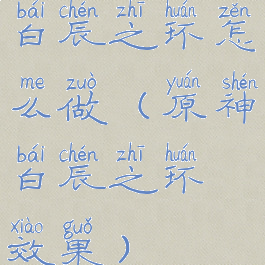 bái chén zhī huán zěn
白辰之环怎
me zuò yuán shén
么做（原神
bái chén zhī huán
白辰之环
xiào guǒ
效果）